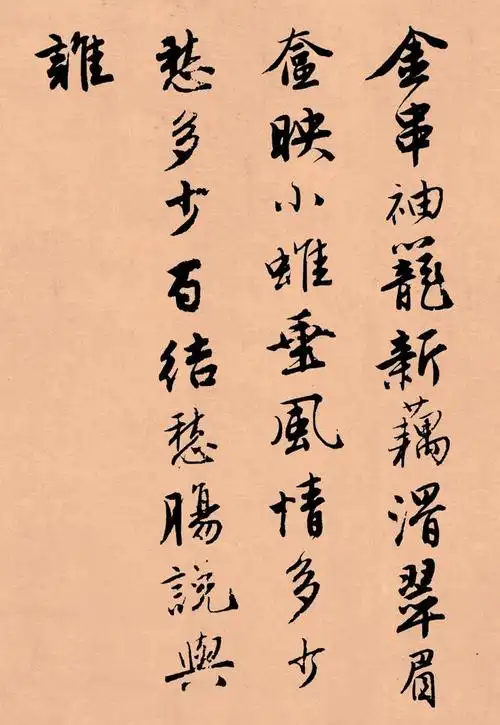 金串袖籠新藕滑翠眉
奩映小蜼垂風情多少
愁多少百結愁腸說與
誰